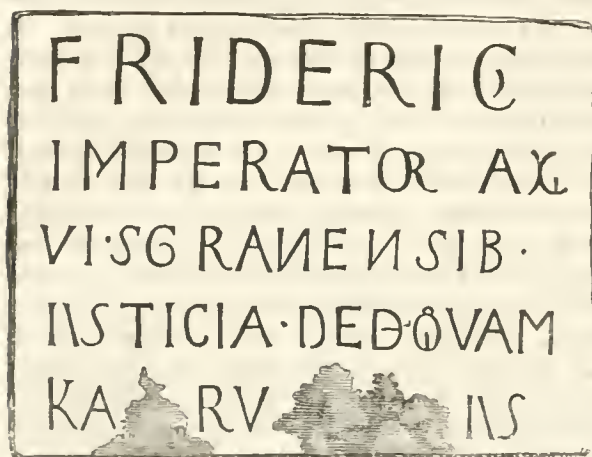 FRIDERIC
IMPERATOR AX
VI·SGRANENSIB·
IVSTICIA·DEDQVAM
KA RV VS